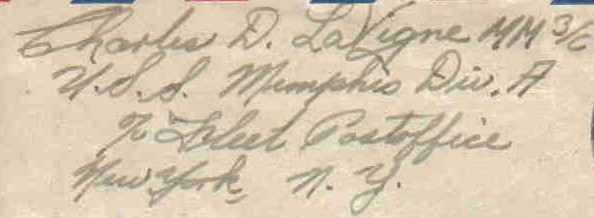 Charles D. LaVigne MM 3/c
U.S.S. Memphis Div. A
% Fleet Postoffice
New York, N.Y.